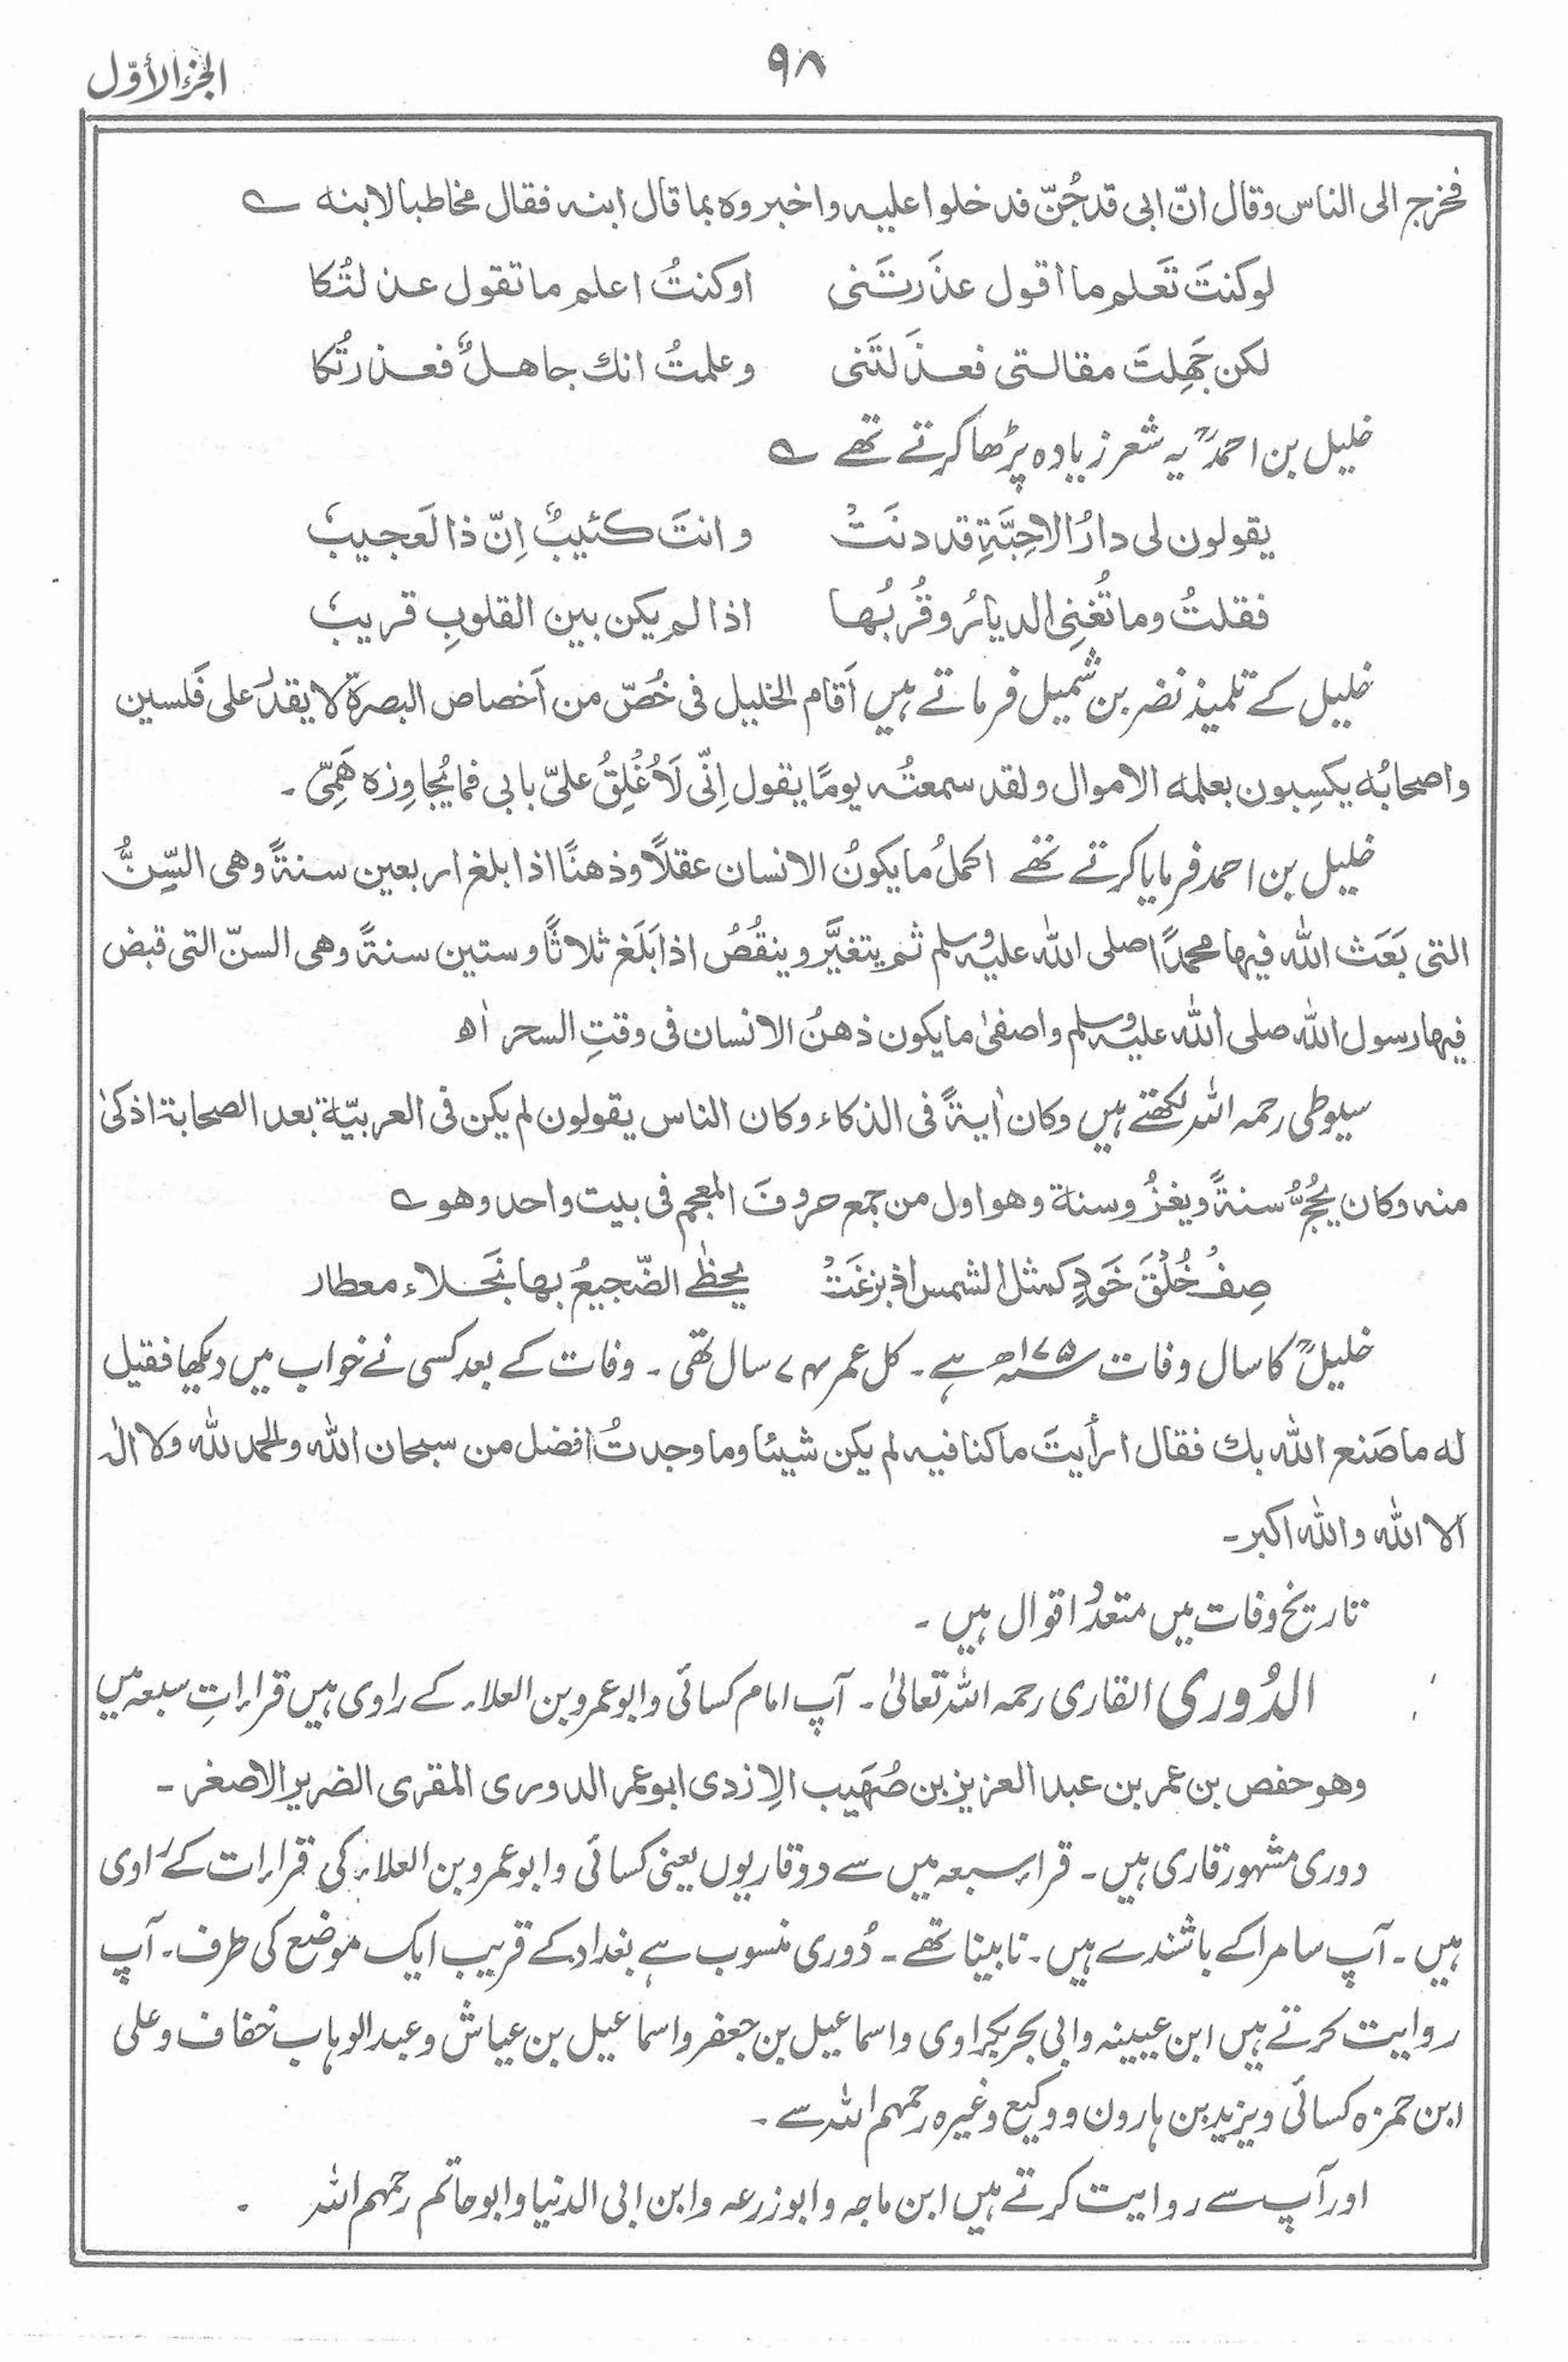 ٩٨
الجزء الأوّل
فخرج الى الناس وقال انّ ابى قد جُنّ فدخلوا عليه واخبروه بما قال ابنه فقال مخاطبا لابنه ے
لو كنتَ تَعلم ما اقول عذَرتَنى اوكنتُ اعلم ما تقول عذلتُكا
لكن جَهِلتَ مقالتى فعذَلتَنى وعلمتُ انك جاهلٌ فعذرتُكا
خلیل بن احمدؒ یہ شعر زیادہ پڑھا کرتے تھے ے
يقولون لى دارُ الاحِبَّةِ قد دنَتْ وانتَ كئيبٌ اِنّ ذا لَعجيبٗ
فقلتُ وما تُغنِى الديارُ وقُربُها اذا لم يكن بين القلوبِ قريبٗ
خلیل کے تلمیذ نضر بن شمیل فرماتے ہیں اَقام الخليل فى خُصّ من اَخصاص البصرة لا يقدر على فَلسين
واصحابُه يكسِبون بعلمه الاموال ولقد سمعتُه يومًا يقول اِنّى لَاُغْلِقُ علىّ بابى فما يُجاوِزه هَمِّى۔
خلیل بن احمد فرمایا کرتے تھے اكملُ ما يكونُ الانسان عقلًا وذهنًا اذا بلغ اربعين سنةً وهى السِّنُّ
التى بَعَث الله فيها محمدًا صلى الله عليه وسلم ثم يتغيَّر وينقُصُ اذا بَلَغ ثلاثًا وستين سنةً وهى السنّ التى قبض
فيها رسول الله صلى الله عليه وسلم واصفىٰ ما يكون ذهنُ الانسان فى وقتِ السحر اٰھ
سیوطی رحمہ اللہ لکھتے ہیں وكان اٰيةً فى الذكاء وكان الناس يقولون لم يكن فى العربيّة بعد الصحابة اذكىٰ
منه وكان يحُجُّ سنةً ويغزُو سنة وهو اول من جمع حروفَ المعجم فى بيت واحد وهو ے
صِفْ خُلْقَ خَودٍ كمثل الشمس اذ بزغَتْ يحظٰى الضّجيعُ بها نَجَلاء معطار
خلیلؒ کا سال وفات ۱۷۵ھ ہے۔ کل عمر ۷۴ سال تھی۔ وفات کے بعد کسی نے خواب میں دیکھا فقيل
له ما صَنع الله بك فقال ارأيتَ ما كنا فيه لم يكن شيئا وما وجدتُ افضل من سبحان الله والحمد لله ولا الٰه
الا الله والله اكبر۔
تاریخ وفات میں متعدد اقوال ہیں۔
الدُوری القاری رحمہ اللہ تعالیٰ۔ آپ امام کسائی و ابو عمرو بن العلاء کے راوی ہیں قراراتِ سبعہ میں
وهو حفص بن عمر بن عبد العزيز بن صُهَيب الازدى ابو عمر الدورى المقرى الضرير الاصغر۔
دوری مشہور قاری ہیں۔ قراء سبعہ میں سے دو قاریوں یعنی کسائی و ابو عمرو بن العلاء کی قرارات کے راوی
ہیں۔ آپ سامرا کے باشندے ہیں۔ نابینا تھے۔ دُوری منسوب ہے بغداد کے قریب ایک موضع کی طرف۔ آپ
روایت کرتے ہیں ابن عیینہ و ابی بحر بکراوی و اسماعیل بن جعفر و اسماعیل بن عیاش و عبد الوہاب خفاف و علی
ابن حمزہ کسائی و یزید بن ہارون و وکیع وغیرہ رحمہم اللہ سے۔
اور آپ سے روایت کرتے ہیں ابن ماجہ و ابو زرعہ و ابن ابی الدنیا و ابو حاتم رحمہم اللہ ۔